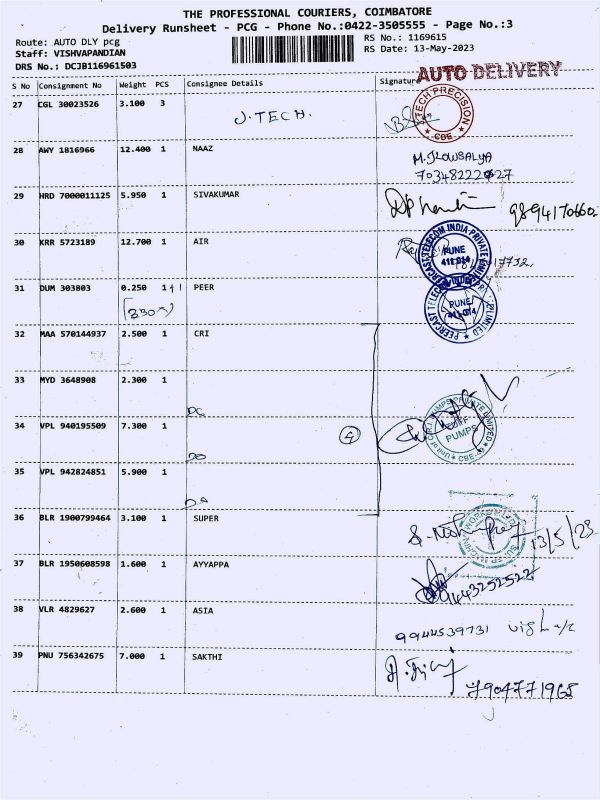 THE PROFESSIONAL COURIERS, COIMBATORE
Delivery Runsheet - PCG - Phone No.:0422-3505555 - Page No.:3
Route: AUTO DLY pcg
Staff: VISHVAPANDIAN
DRS No.: DCJB116961503
RS No.: 1169615
RS Date: 13-May-2023
AUTO DELIVERY
S No Consignment No Weight PCS Consignee Details Signature
27 CGL 30023526 3.100 3 J.TECH.
TECH PRECISION CBE
28 AWY 1816966 12.400 1 NAAZ
M.KOWSALYA
29 HRD 7000011125 5.950 1 SIVAKUMAR
9894170660
30 KRR 5723189 12.700 1 AIR
PEERCAST TELECOM INDIA PRIVATE LIMITED
PUNE
411 014
31 DUM 303803 0.250 1 PEER
PUNE
411 014
32 MAA 570144937 2.500 1 CRI
33 MYD 3648908 2.300 1
DC
34 VPL 940195509 7.300 1
4
C.R.I. PUMPS PRIVATE LIMITED
PUMPS
CBE
35 VPL 942824851 5.900 1
36 BLR 1900799464 3.100 1 SUPER
13/5/23
37 BLR 1950608598 1.600 1 AYYAPPA
9443252522
38 VLR 4829627 2.600 1 ASIA
9944539731
39 PNU 756342675 7.000 1 SAKTHI
7904771965